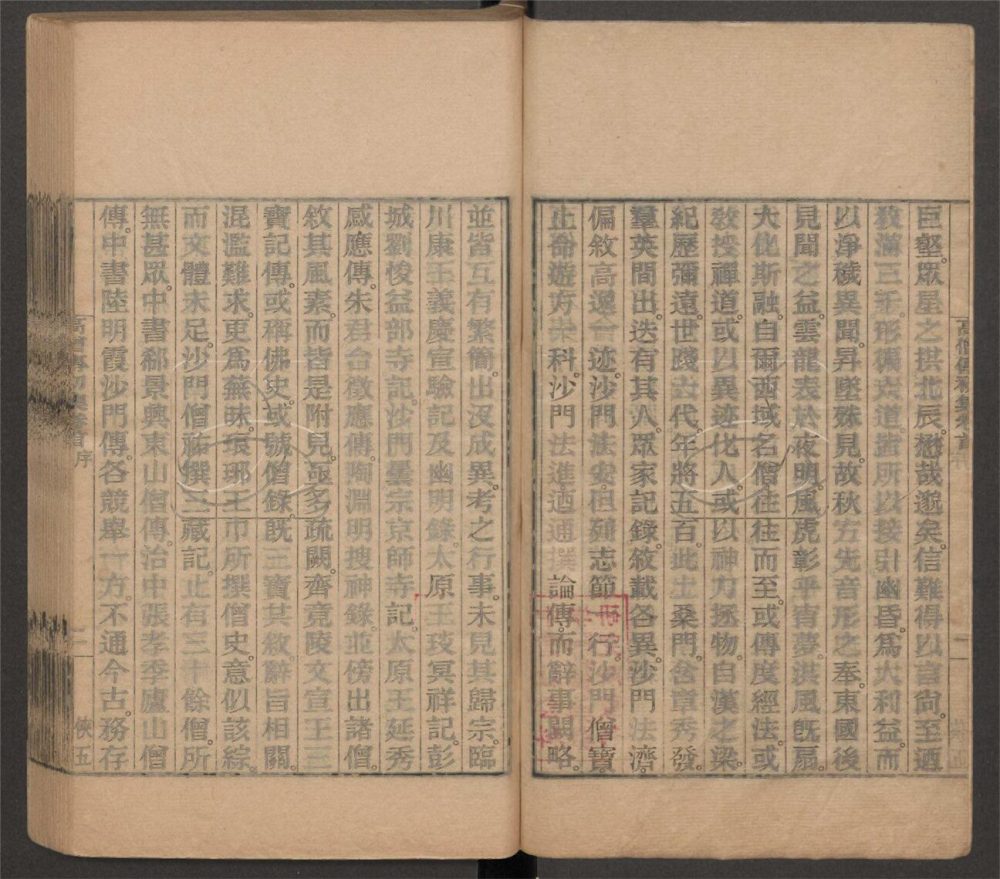 巨壑。眾星之拱北辰。悠哉邈矣。信難得以言尚。至迺
教滿三千。形徧六道。皆所以接引幽昏。爲大利益。而
以淨穢異聞。昇墜殊見。故秋方先音形之奉。東國後
見聞之益。雲龍表於夜明。風虎彰乎宵夢。洪風既扇。
大化斯融。自爾西域名僧往往而至。或傳度經法。或
教授禪道。或以異迹化人。或以神力拯物。自漢之梁。
紀歷彌遠。世踐六代。年將五百。此土桑門。含章秀發。
羣英間出。迭有其人。眾家記錄。敘載各異。沙門法濟。
偏敘高逸一迹。沙門法安。但列志節一行。沙門僧寶。
止命遊方一科。沙門法進。迺通撰論傳。而辭事闕略。
並皆互有繁簡。出沒成異。考之行事。未見其歸宗。臨
川康王義慶宣驗記及幽明錄。太原王琰冥祥記。彭
城劉悛益部寺記。沙門曇宗京師寺記。太原王延秀
感應傳。朱君台徵應傳。陶淵明搜神錄。並傍出諸僧。
敘其風素。而皆是附見。亟多疏闕。齊竟陵文宣王三
寶記傳。或稱佛史。或號僧錄。既三寶共敘。辭旨相關。
混濫難求。更爲無昧。瑯琊王巾所撰僧史。意似該綜。
而文體未足。沙門僧祐撰三藏記。止有三十餘僧。所
無甚眾。中書郗景興東山僧傳。治中張孝季廬山僧
傳。中書陸明霞沙門傳。各競舉一方。不通今古。務存
高僧傳初集卷首序
二
俠五